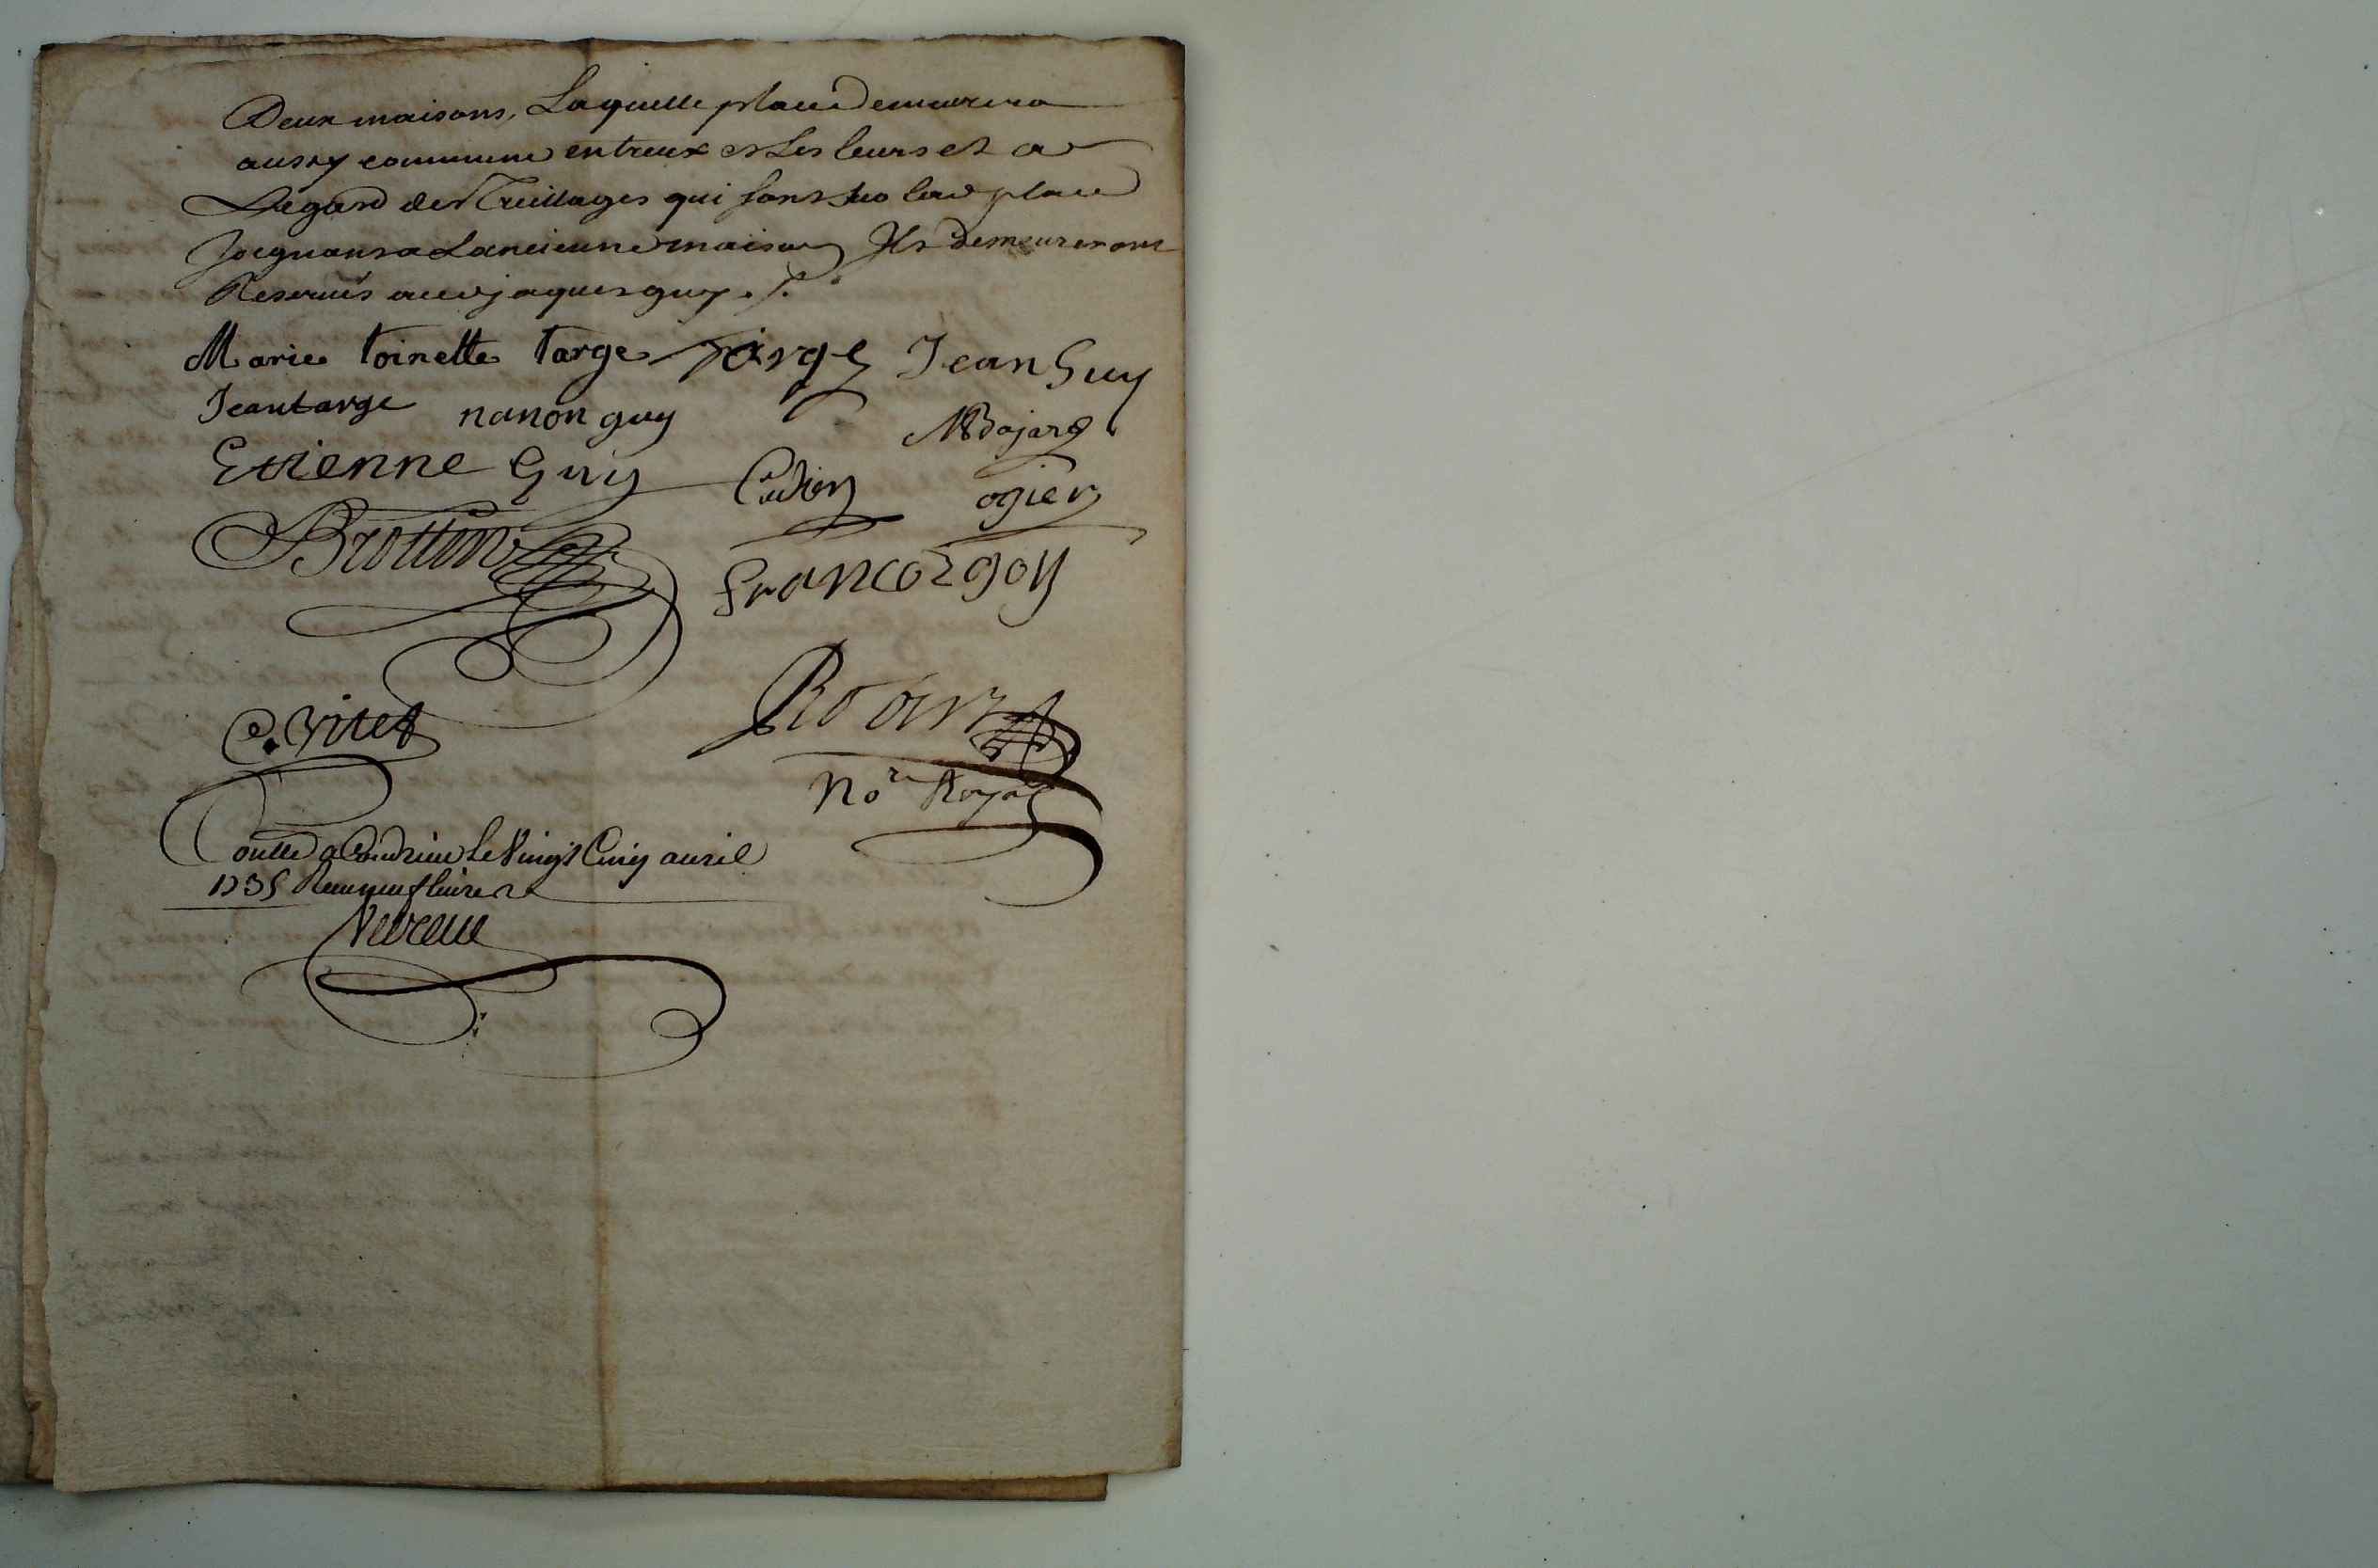 Deux maisons, Laquelle place Demeurera
aussy commune entreux et Les leurs et a
Legard des Treillages qui sont sur lad place
Joignans a Lancienne maison Ils Demeureront
Reservés aud jaques guy ./.
Marie toinette targe Targe Jean Guy
Jean targe nanon guy MBajard
Etienne Guy Cudion ogier
Brottin francoz goy
C. Vitet
No.re Royal
Contlle a Condrieu Le Vingt Cinq avril
1735 Receu neuf livres